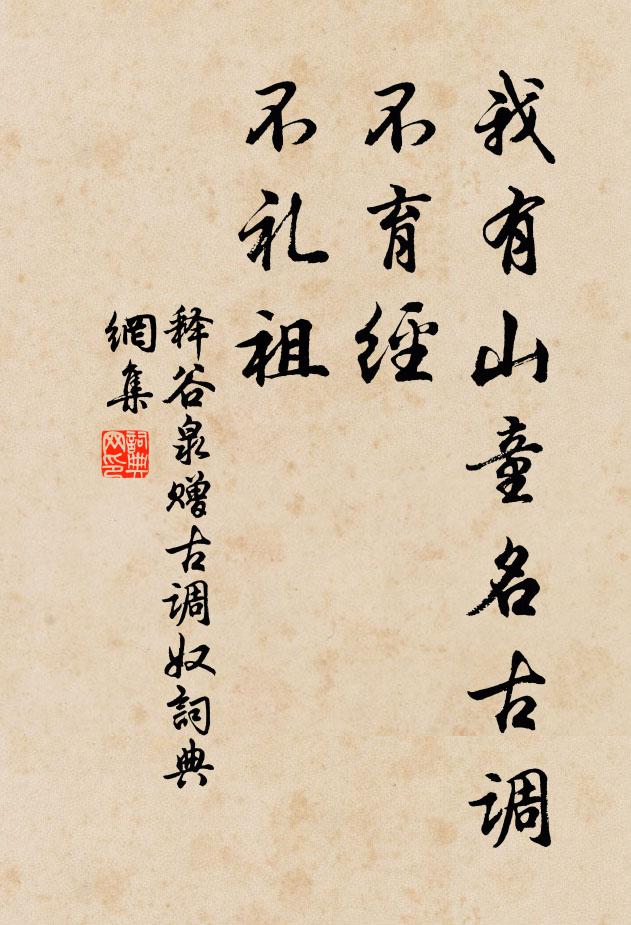 我有山童名古调
不育經
不礼祖
释谷泉赠古调奴詞典
網集
詞典
网印